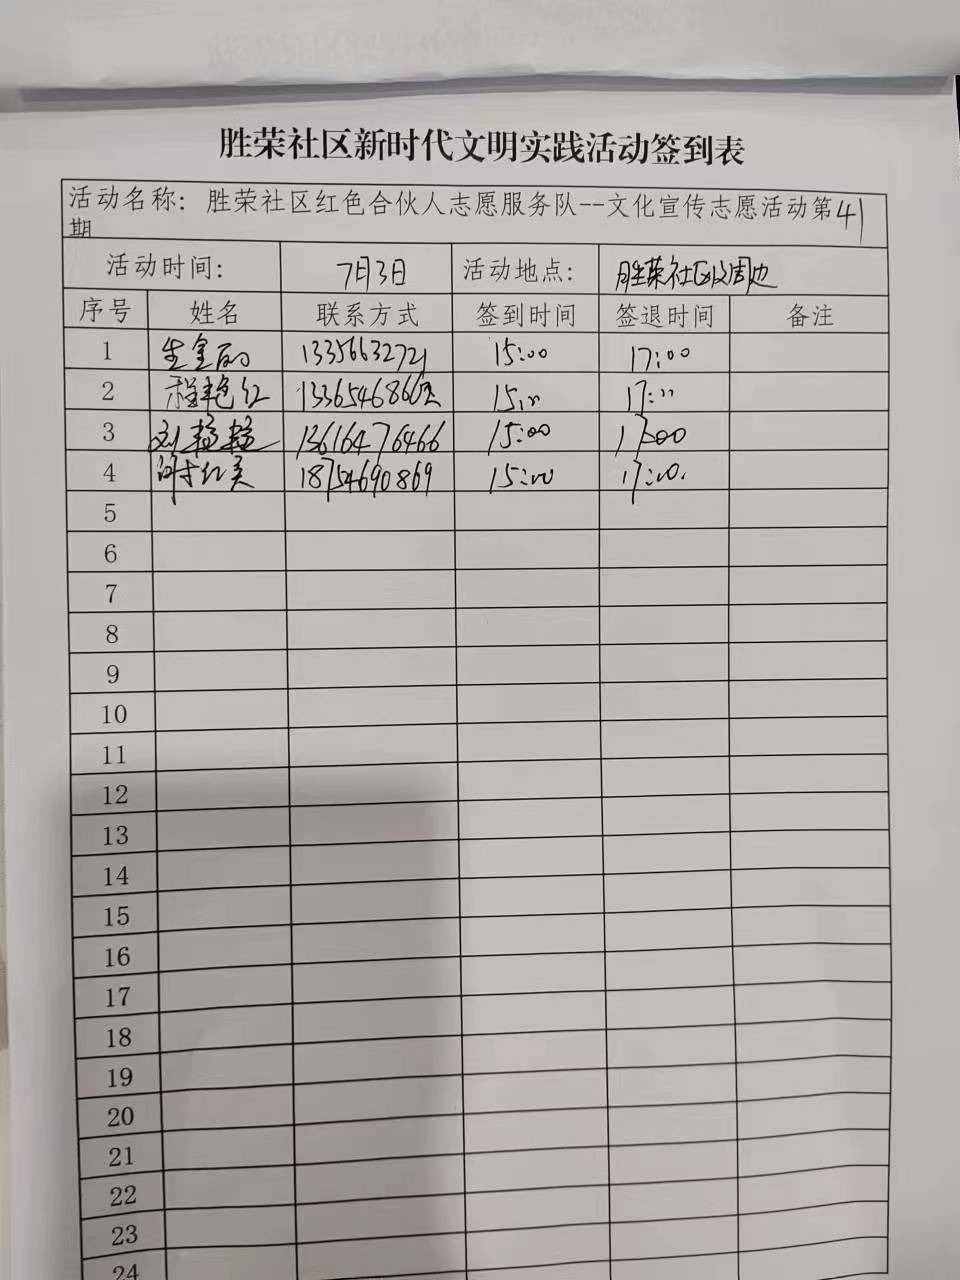 胜荣社区新时代文明实践活动签到表
活动名称：胜荣社区红色合伙人志愿服务队--文化宣传志愿活动第41
期
活动时间： 7月3日 活动地点： 胜荣社区及周边
序号 姓名 联系方式 签到时间 签退时间 备注
1 13356632721 15:00 17:00
2 程艳红 1336546866 15:00 17:00
3 刘 13616476466 15:00 17:00
4 谢红美 18754690869 15:00 17:00.
5
6
7
8
9
10
11
12
13
14
15
16
17
18
19
20
21
22
23
24